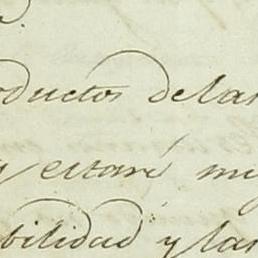 oductos de las
y estaré mu
bilidad y las